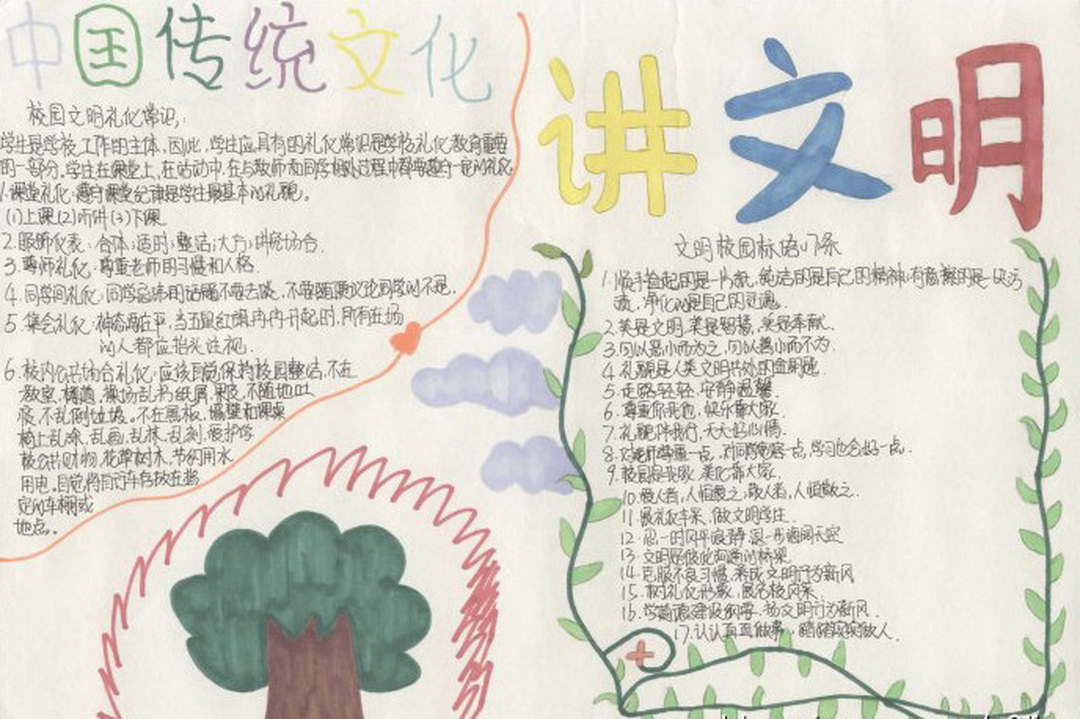 中国传统文化
校园文明礼仪常识:
学生是学校工作的主体,因此,学生应具有的礼仪常识是学校礼仪教育重要
的一部分。学生在课堂上,在活动中,在与教师和同学相处过程中都要遵守一定的礼仪
1.课堂礼仪:遵守课堂纪律是学生最基本的礼貌。
(1)上课(2)听讲(3)下课
2.服饰仪表:合体;适时;整洁;大方;讲究场合.
3.尊师礼仪:尊重老师的习惯和人格.
4.同学间礼仪:
5.集会礼仪: 当五星红旗冉冉升起时,所有在场
的人都应抬头注视.
6.校内公共场合礼仪:应该自觉保持校园整洁,不在
教室、楼道、操场乱扔纸屑、果皮、不随地吐
痰、不乱倒垃圾。不在黑板、墙壁和课桌
椅上乱涂、乱画、乱抹、乱刻,爱护学
校公共财物、花草树木,节约用水
用电。自觉将自行车存放在指
定的车棚或
地点。
讲文明
文明校园标语17条
1.顺手捡起的是一片纸,纯洁的是自己的精神;有意擦的是一块污
渍,净化的是自己的灵魂.
2.美是文明,美是智慧,美是奉献.
3.勿以恶小而为之,勿以善小而不为.
4.礼貌是人类文明共处的金钥匙.
5.走路轻轻,安静温馨
6.尊重你我他,快乐靠大家.
7.礼貌伴我行,天天好心情.
8.对老师尊重一点,对同学宽容一点,学习也会好一点.
9.校园是我家,美化靠大家.
10.爱人者,人恒爱之,敬人者,人恒敬之.
11.展礼仪丰采,做文明学生.
12.忍一时风平浪静,退一步海阔天空
13.文明是彼此沟通的桥梁
14.克服不良习惯,养成文明行为新风
15.树礼仪形象,展名校风采.
16.学道德建设纲要,扬文明行为新风.
17.认认真真做事,踏踏实实做人.